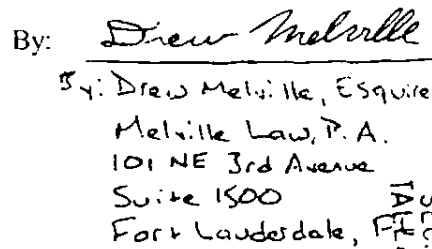 By: Drew Melville
By: Drew Melville, Esquire
Melville Law, P.A.
101 NE 3rd Avenue
Suite 1500
Fort Lauderdale,